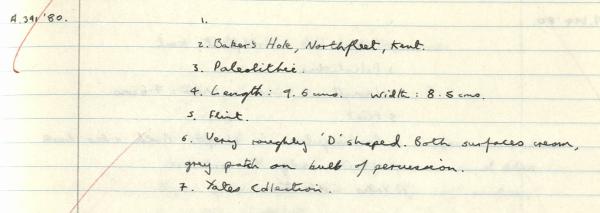 A.391 '80.
1.
2. Baker's Hole, Northfleet, Kent.
3. Paleolithic
4. Length: 9.6 cms. Width: 8.5 cms.
5. Flint.
6. Very roughly 'D' shaped. Both surfaces cream,
grey patch on bulb of percussion.
7. Yates Collection.